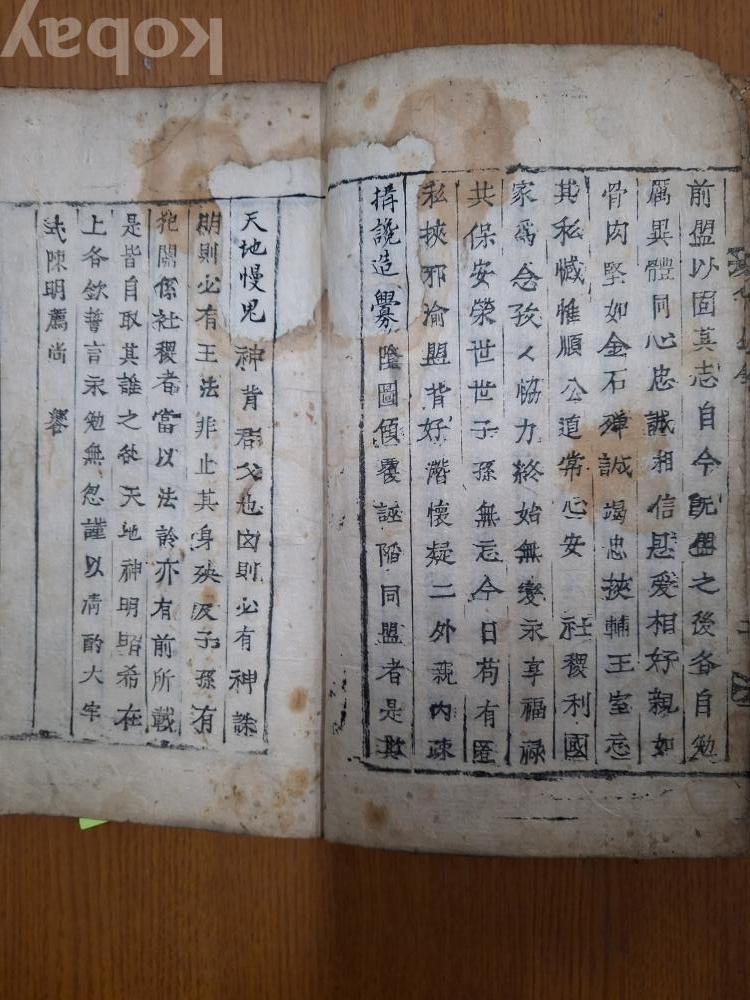 前盟以固其志自今既盟之後各自勉
厲異體同心忠誠相信恩愛相好親如
骨肉堅如金石殫誠竭忠挾輔王室忘
其私憾惟順公道常心安 社稷利國
家爲念孜人恊力終始無變永享福禄
共保安榮世世子孫無忘今日苟有匿
私挾邪渝盟背好潛懷疑二外親内疎
搆讒造釁隂圖傾覆誣陷同盟者是欺
天地慢鬼神背君父也幽則必有神誅
明則必有王法非止其身殃及子孫有
犯關係社稷者當以法論亦有前所載
是皆自取其誰之咎天地神明昭布在
上各欽誓言永勉無忽謹以清酌大牢
式陳明薦尚 饗
kobay